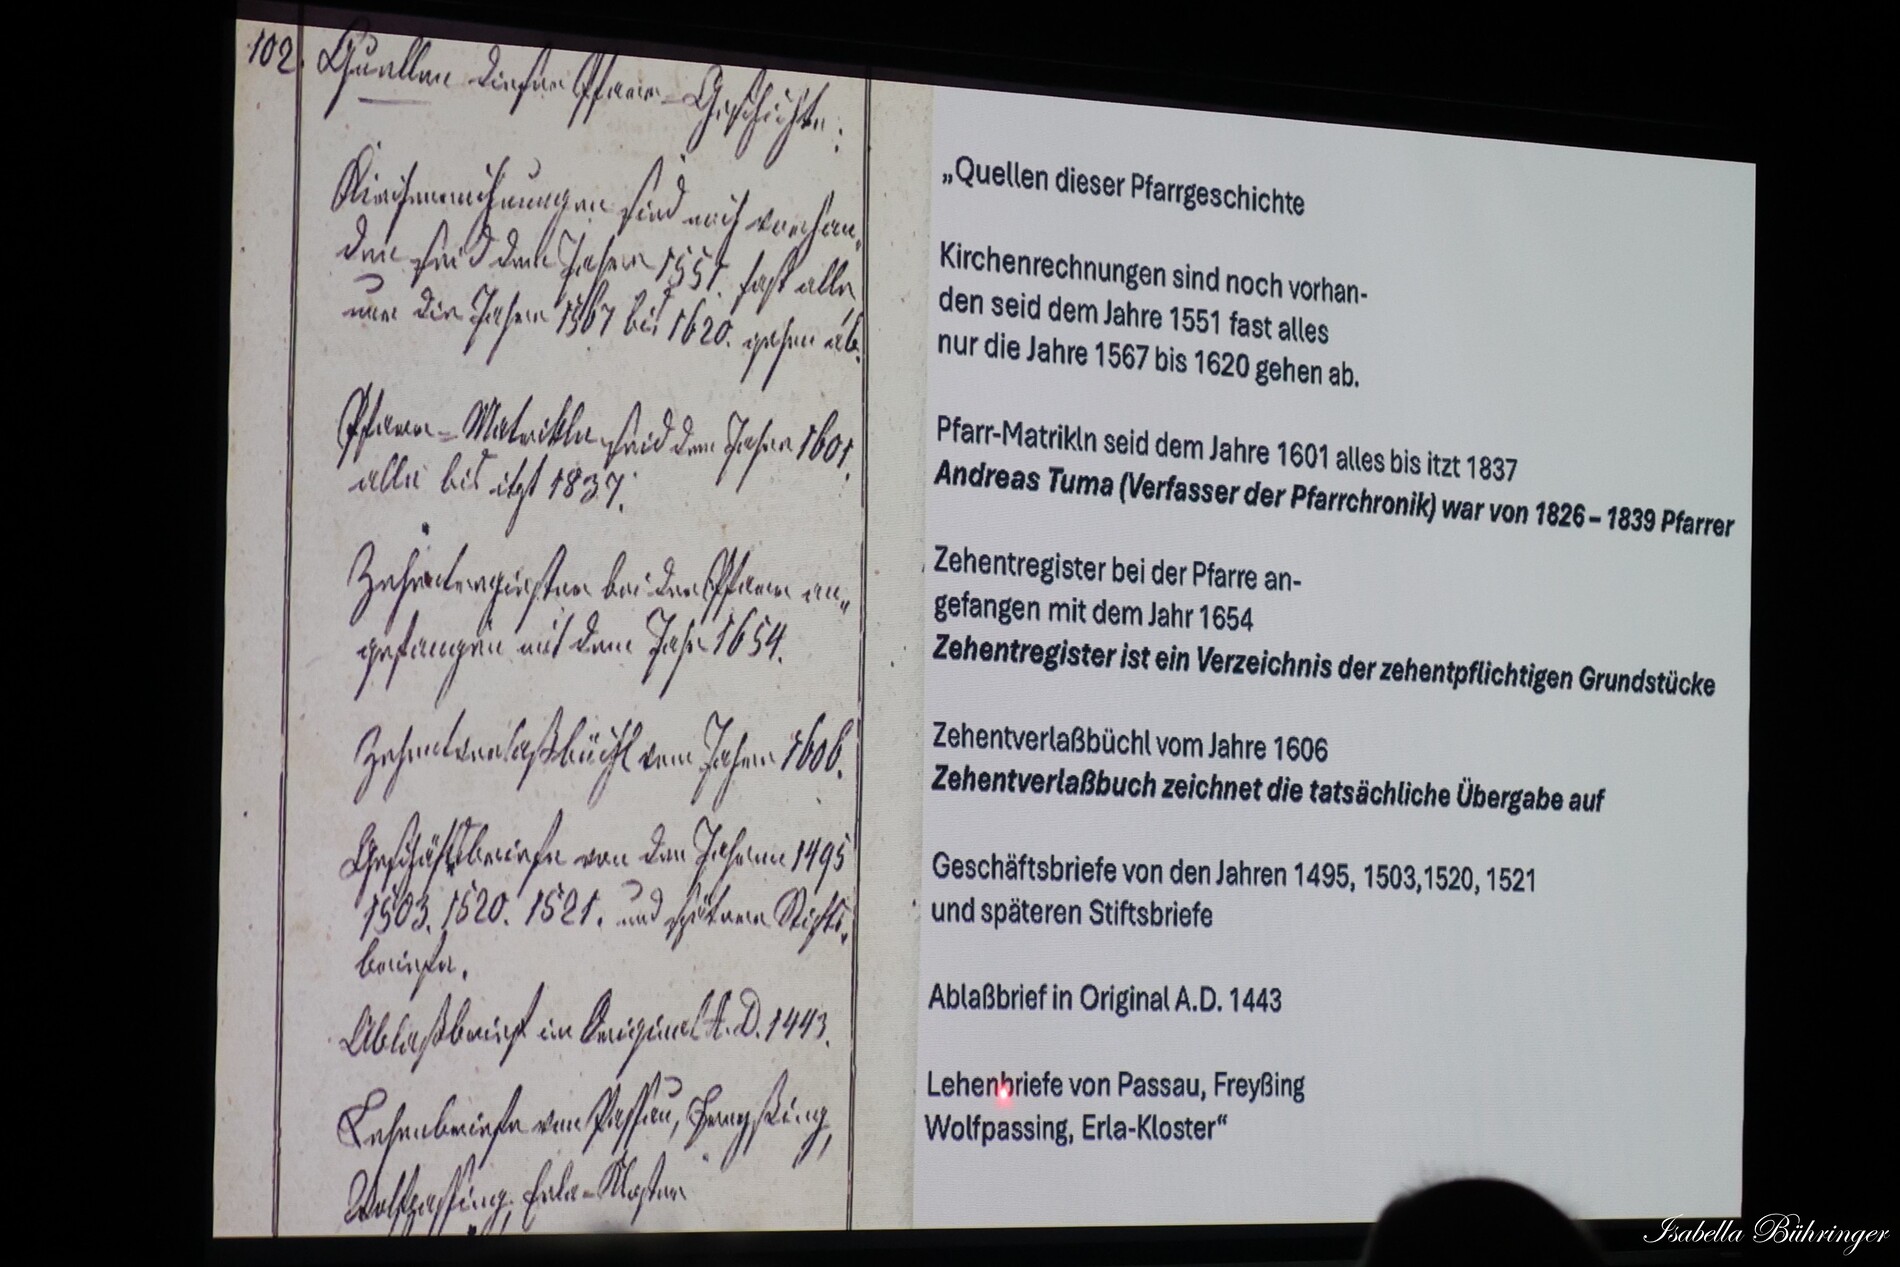 102. Quellen dieser Pfarr-Geschichte:
Kirchenrechnungen sind noch vorhan-
den seid dem Jahre 1551. fast alle,
nur die Jahre 1567 bis 1620. gehen ab.
Pfarr-Matrikln seid dem Jahre 1601.
alle bis itzt 1837.
Zehentregister bei der Pfarre an-
gefangen mit dem Jahr 1654.
Zehentverlaßbüchl vom Jahre 1606.
Geschäftsbriefe von den Jahren 1495
1503. 1520. 1521. und spätere Stifts-
briefe.
Ablaßbrief in Original A.D. 1443.
Lehenbriefe von Passau, Freyßing,
Wolfpassing, Erla-Kloster
„Quellen dieser Pfarrgeschichte
Kirchenrechnungen sind noch vorhan-
den seid dem Jahre 1551 fast alles
nur die Jahre 1567 bis 1620 gehen ab.
Pfarr-Matrikln seid dem Jahre 1601 alles bis itzt 1837
Andreas Tuma (Verfasser der Pfarrchronik) war von 1826 – 1839 Pfarrer
Zehentregister bei der Pfarre an-
gefangen mit dem Jahr 1654
Zehentregister ist ein Verzeichnis der zehentpflichtigen Grundstücke
Zehentverlaßbüchl vom Jahre 1606
Zehentverlaßbuch zeichnet die tatsächliche Übergabe auf
Geschäftsbriefe von den Jahren 1495, 1503,1520, 1521
und späteren Stiftsbriefe
Ablaßbrief in Original A.D. 1443
Lehenbriefe von Passau, Freyßing
Wolfpassing, Erla-Kloster“
Isabella Bühringer